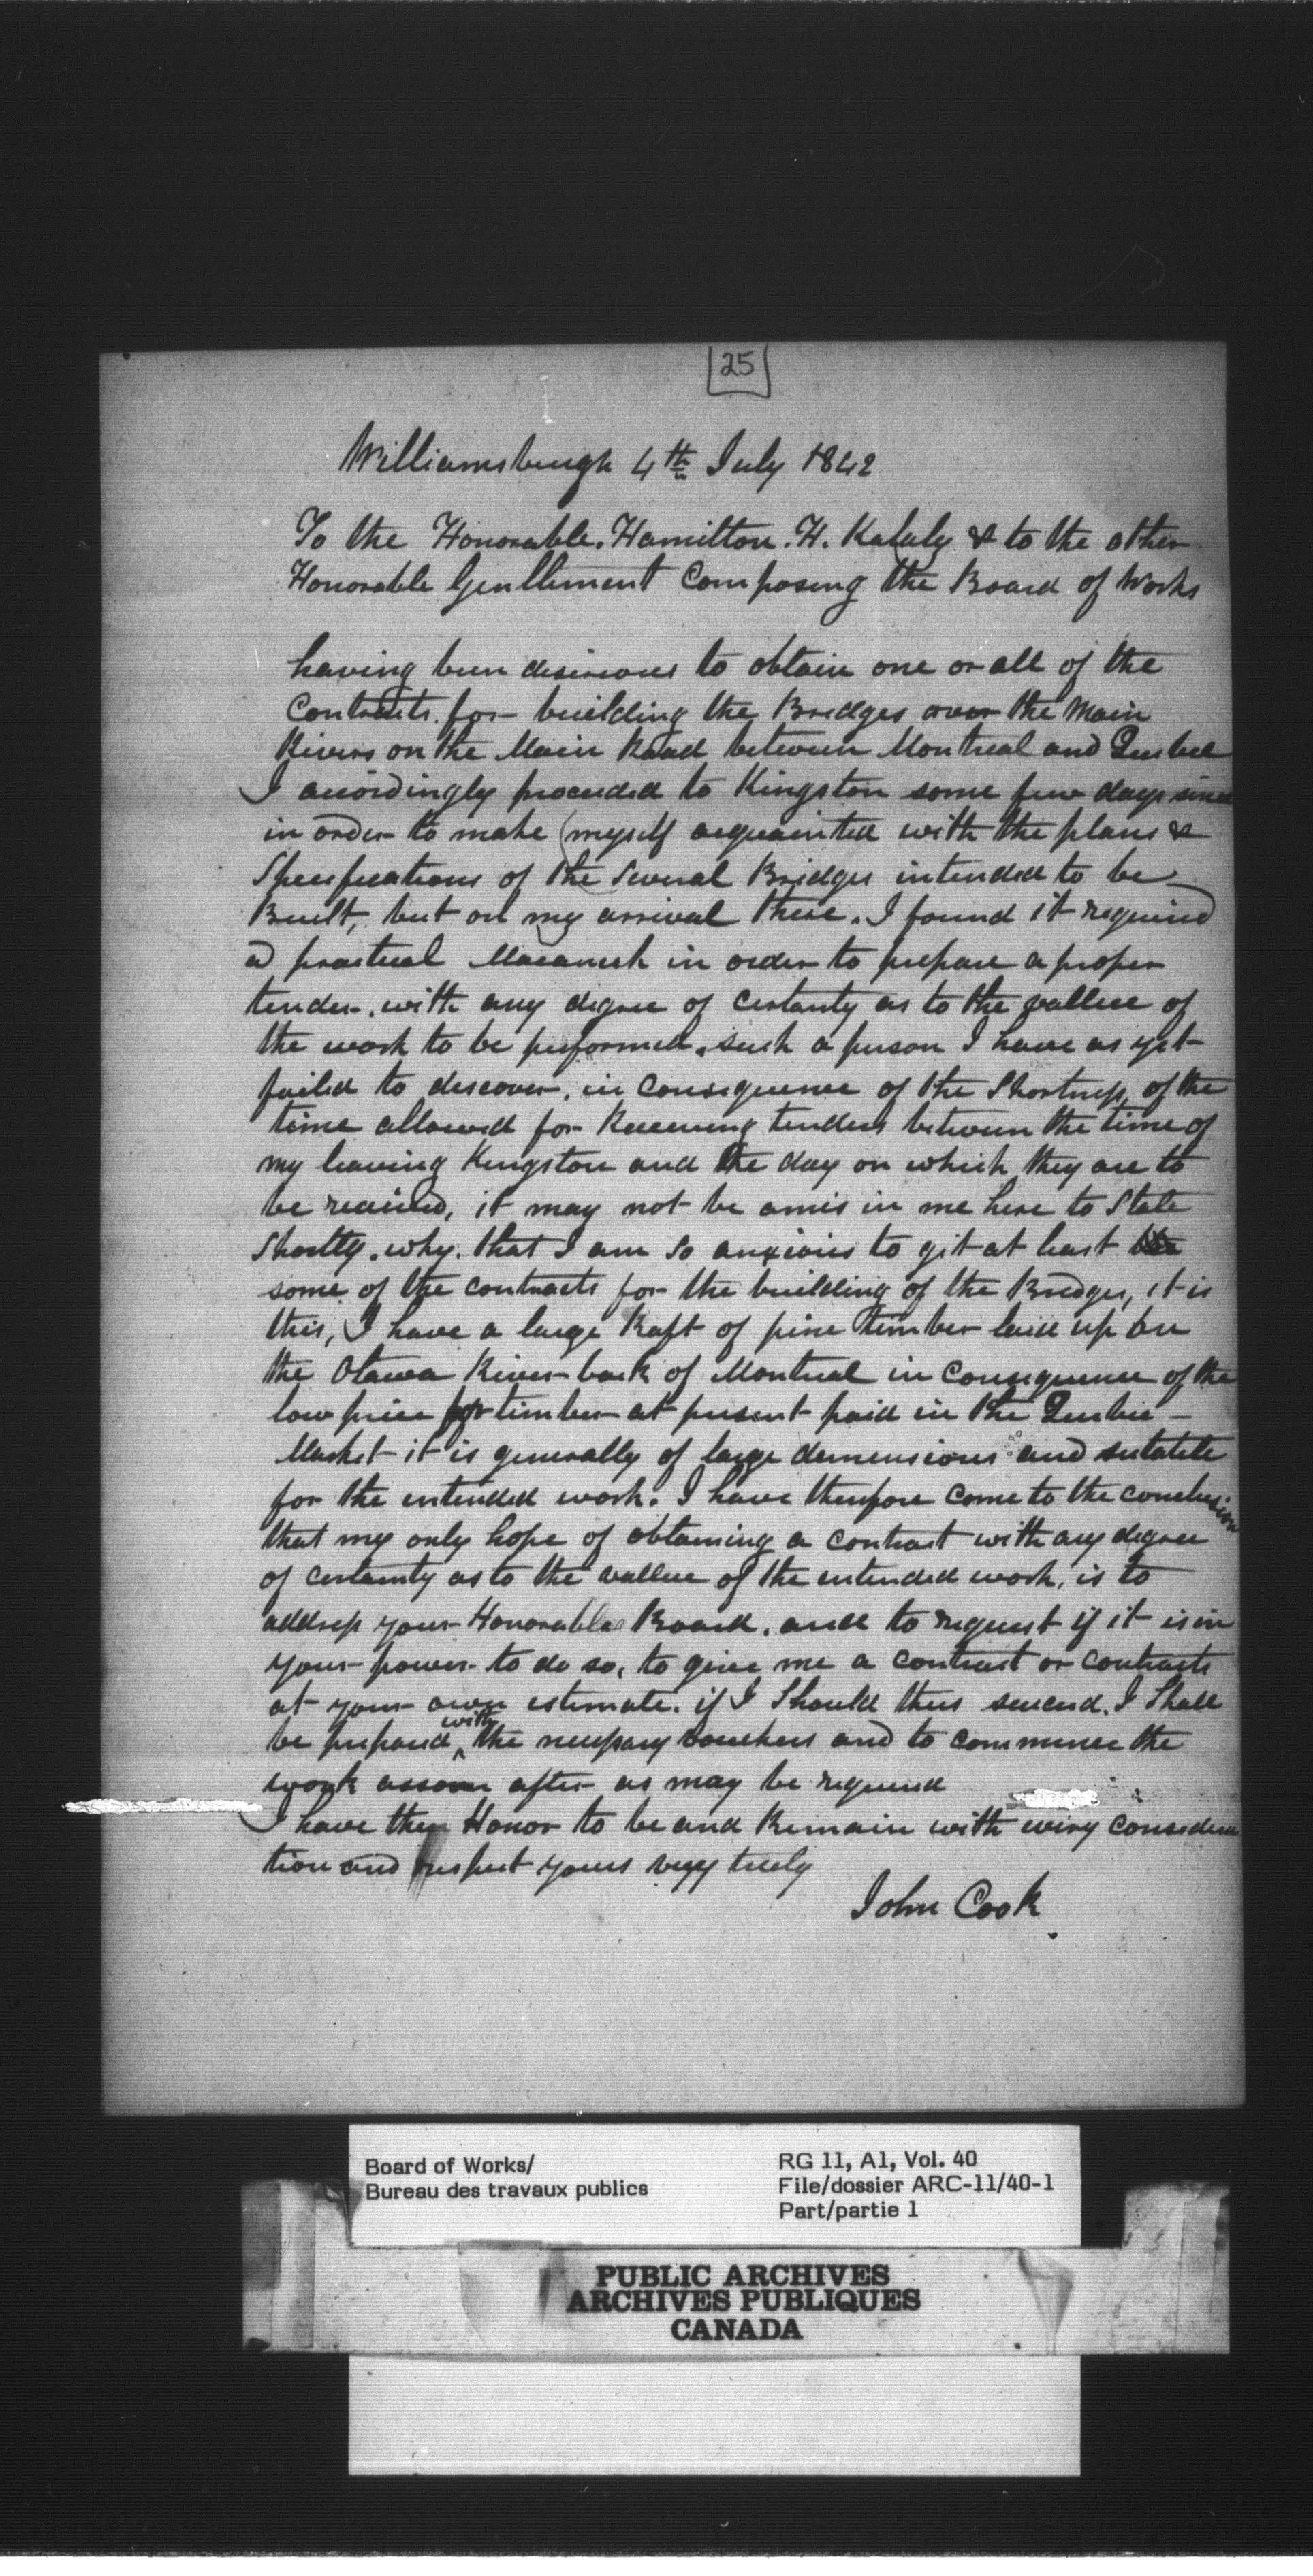 25
Williamsburgh 4th July 1842
To the Honorable. Hamilton. H. Kalaly & to the other
Honorable Genlliment Composing the Board of Works
having been desireous to obtain one or all of the
Contracts. for building the Bridges over the Main
Rivers on the Main Road between Montreal and Quebec
I accordingly proceeded to Kingston some few days since
in order to make myself acquainted with the plans &
Specifications of the Several Bridges intended to be
Built, but on my arrival there. I found it required
a practual Macanick in order to prepare a proper
tender. with any degree of certanty as to the vallue of
the work to be performed. such a person I have as yet
failed to descover, in Consequence of the Shortness, of the
time allowed for Receiving tenders between the time of
my leaving Kingston and the day on which they are to
be received, it may not be amis in me here to State
Shortly. why. that I am so anxious to git at least
some of the contracts for the building of the Bredges, it is
this, I have a large Raft of pine timber laid up on
the Otawa River back of Montreal in Consequence of the
low price for timber at present paid in the Quebec
Market it is generally of large demensions and sutable
for the entended work. I have therefore Come to the conclusion
that my only hope of obtaining a contract with any degree
of certainty as to the vallue of the entended work, is to
address your Honorable Board. and to request if it is in
your power to do so, to give me a contract or contracts
at your own estimate. if I Should thus succeed. I Shall
be prepared with the necessary vouchers and to commence the
work assoon after as may be required
I have then Honor to be and Remain with very considera
tion and respect yours very truly
John Cook
Board of Works/
Bureau des travaux publics
RG 11, A1, Vol. 40
File/dossier ARC-11/40-1
Part/partie 1
PUBLIC ARCHIVES
ARCHIVES PUBLIQUES
CANADA